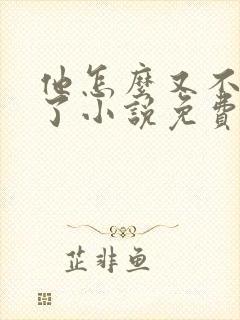 他怎麼又不
了小說免費
芷非魚